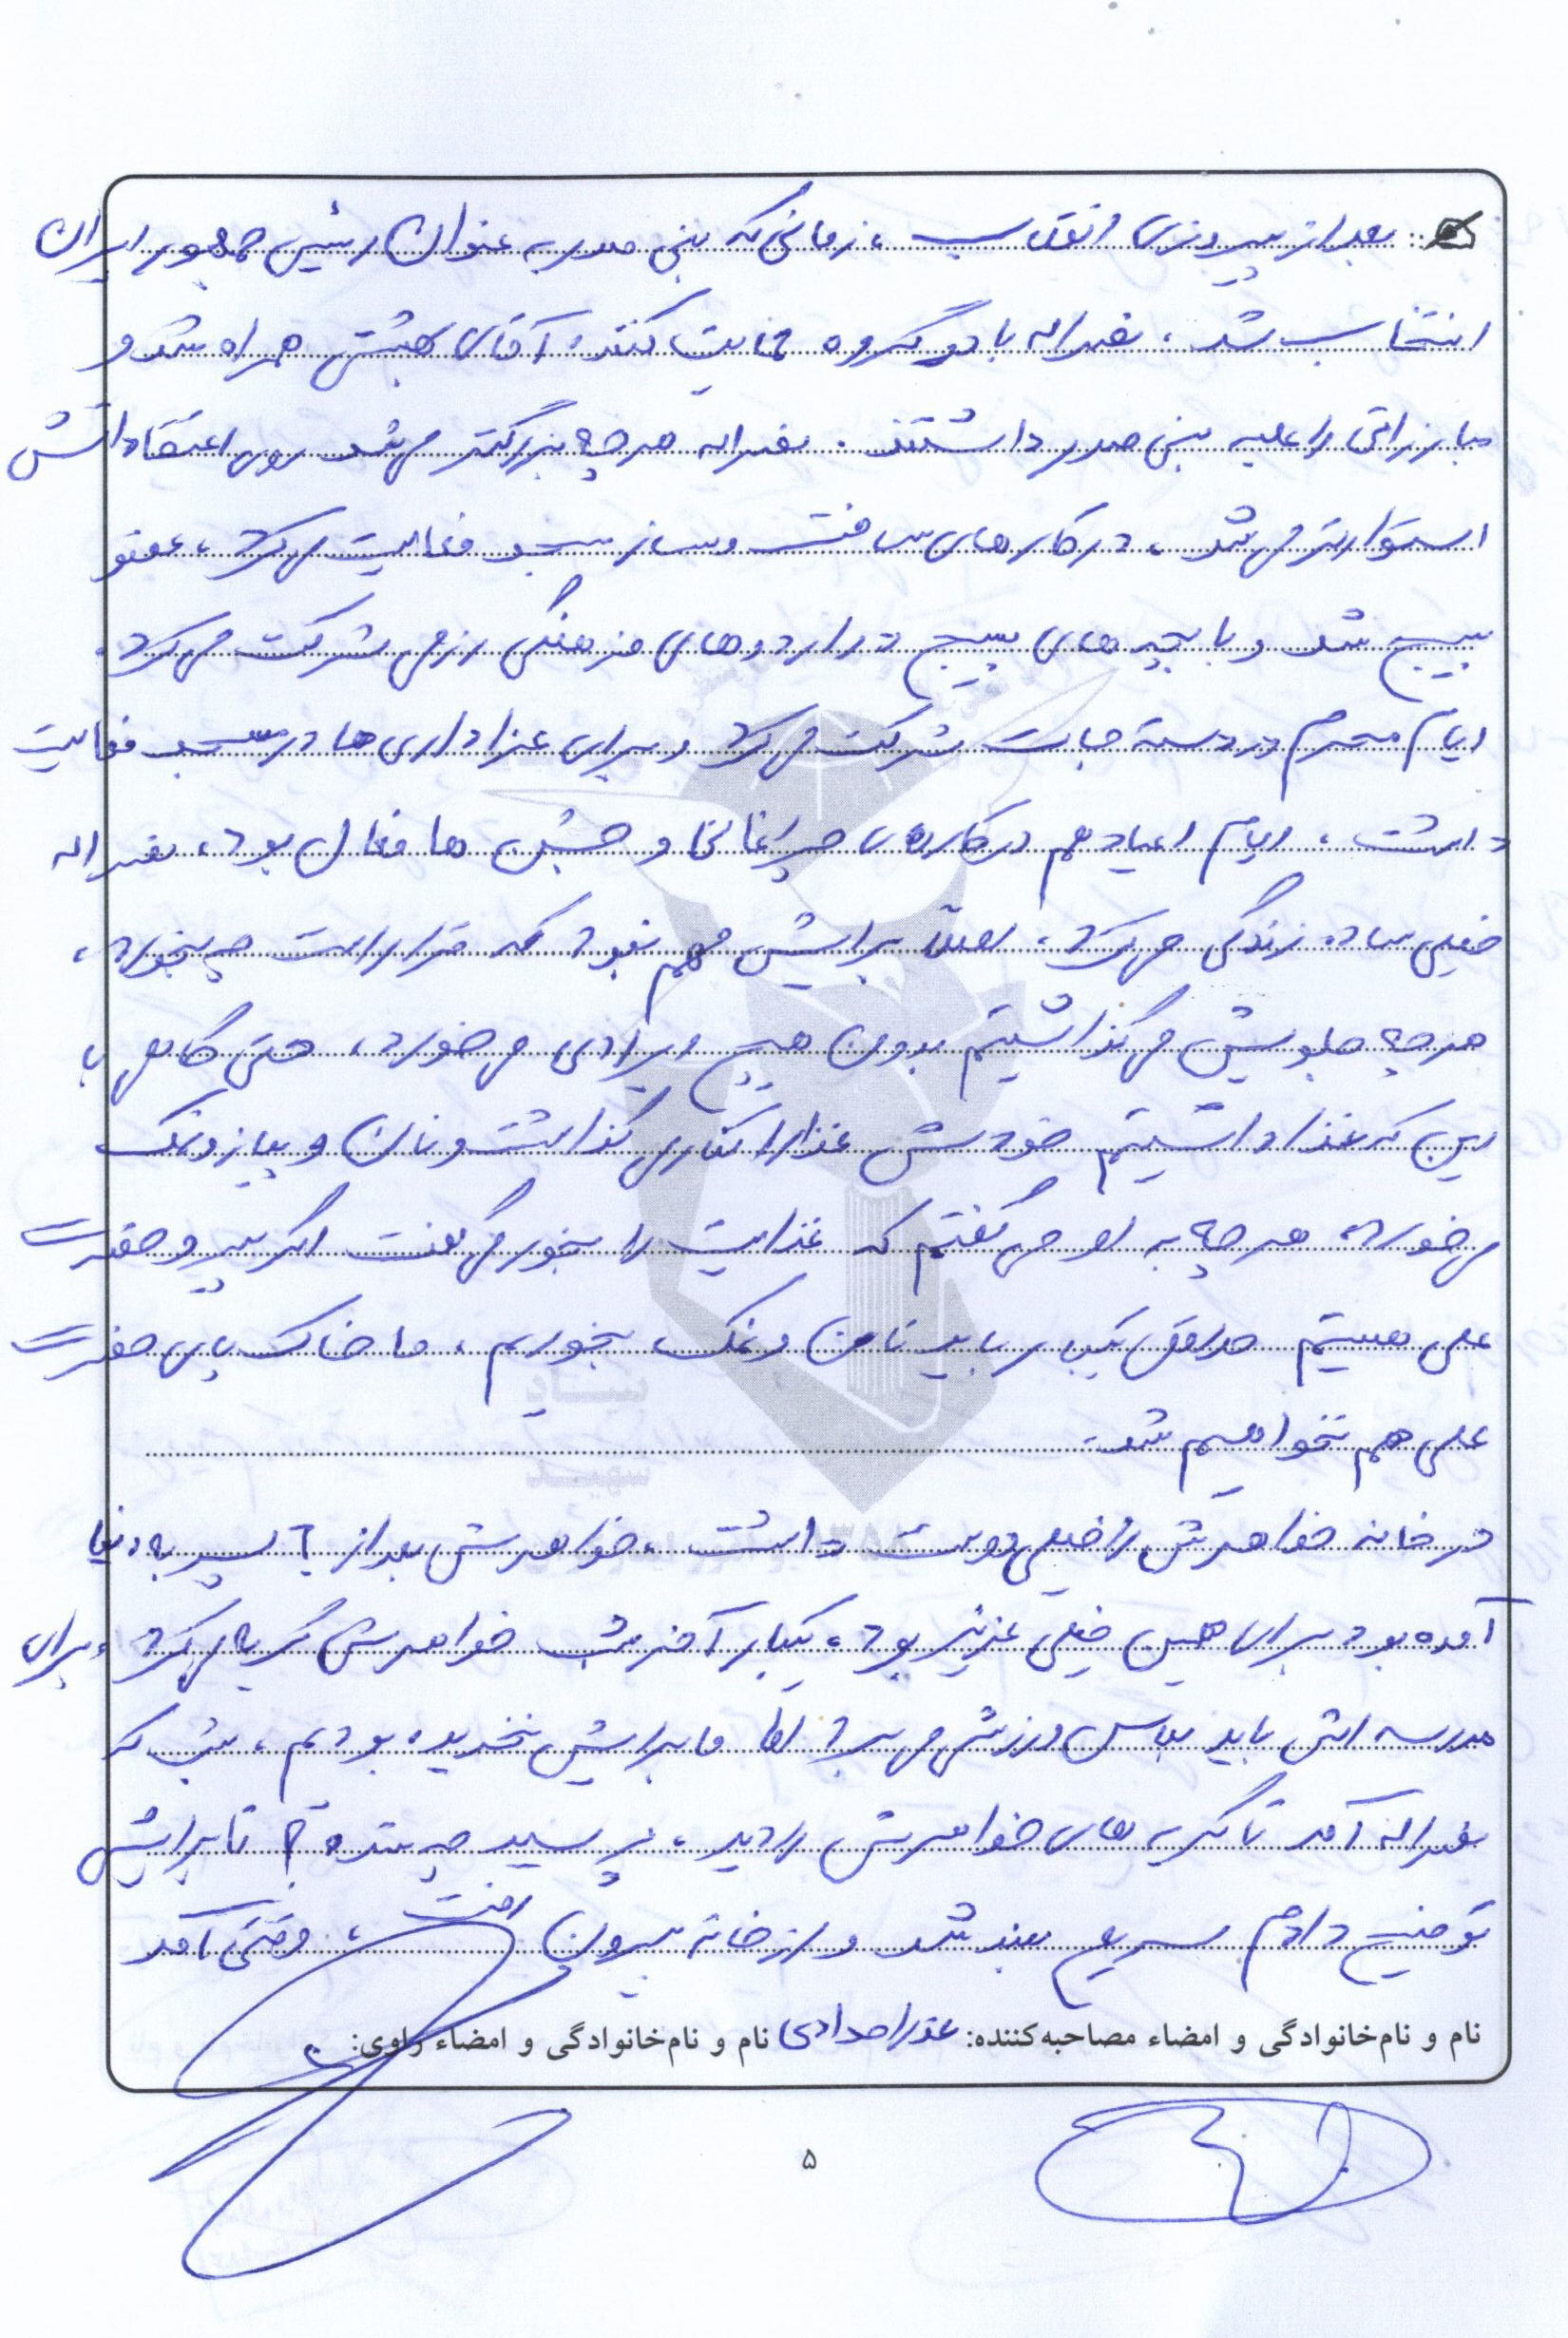 بعد از پیروزی انقلاب ، زمانی که بنی صدر به عنوان رئیس جمهور ایران
انتخاب شد ، نصراله با دو گروه حمایت کننده آقای بهشتی همراه شد و
مبارزاتی را علیه بنی صدر داشتند . نصراله هر چه بزرگتر می شد روی اعتقاداتش
استوارتر می شد ، در کارهای ساخت و ساز مسجد فعالیت می کرد ، عضو
بسیج شد و با بچه های بسیج در اردوهای فرهنگی رزمی شرکت می کرد .
ایام محرم در دسته جات شرکت می کرد و برای عزاداری ها در مسجد فعالیت
داشت ، ایام اعیاد هم در کارهای چراغانی و جشن ها فعال بود ، نصراله
خیلی ساده زندگی می کرد ، اصلاً برایش مهم نبود که قرار است چه بخورد ،
هر چه جلویش می گذاشتیم بدون هیچ ایرادی می خورد ، حتی گاهی با
این که غذا داشتیم خودش غذا را کناری گذاشت و نان و پیاز و نمک
می خورد ، هر چه به او می گفتم که غذایت را بخور می گفت اگر پیرو حضرت
علی هستیم حداقل یکبار باید نان و نمک بخوریم ، ما خاک پای حضرت
علی هم نخواهیم شد .
در خانه خواهرش را خیلی دوست داشت ، خواهرش بعد از ۶ پسر به دنیا
آمده بود برای همین خیلی عزیز بود ، یکبار آخر شب خواهرش گریه می کرد ، برای
مدرسه اش باید لباس ورزشی می برد اما ما برایش نخریده بودیم ، شب که
نصراله آمد تا گریه های خواهرش را دید ، پرسید چه شده ؟ تا برایش
توضیح دادم سریع بلند شد و از خانه بیرون رفت ، وقتی آمد
نام و نام‌خانوادگی و امضاء مصاحبه‌کننده: عذرا حدادی نام و نام‌خانوادگی و امضاء راوی:
۵